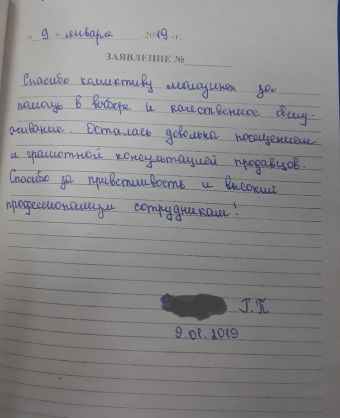 « 9 » января 2019 г.
ЗАЯВЛЕНИЕ №
Спасибо коллективу магазина за
помощь в выборе и качественное обслу-
живание. Осталась довольна посещением
и грамотной консультацией продавцов.
Спасибо за приветливость и высокий
профессионализм сотрудникам!
Г.П
9.01.2019